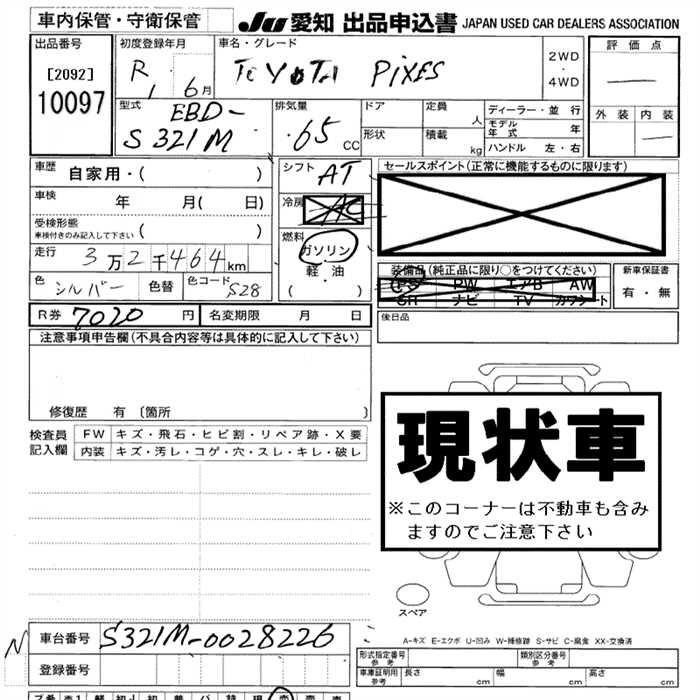 車内保管・守衛保管
JU 愛知 出品申込書 JAPAN USED CAR DEALERS ASSOCIATION
出品番号
[2092]
10097
初度登録年月
R 1 6月
車名・グレード
TOYOTA PIXES
2WD
・
4WD
評価点
外装 内装
型式
EBD-
S321M
排気量
.65 CC
ドア
形状
定員 人
積載 kg
ディーラー・並行
モデル年式 年
ハンドル 左・右
車歴
自家用・( )
車検 年 月( 日)
受検形態
車検付きのみ記入して下さい ( )
走行 3万2千464km
色 シルバー 色替 色コード S28
シフト AT
冷房 AC
燃料
ガソリン
軽・油
( ・ )
セールスポイント(正常に機能するものに限ります)
装備品(純正品に限り○をつけてください)
PS PW エアB AW
SR ナビ TV カワシート
新車保証書
有・無
R券 7020 円 名変期限 月 日
後日品
注意事項申告欄(不具合内容等は具体的に記入して下さい)
修復歴 有 〔箇所 〕
検査員
記入欄
FW キズ・飛石・ヒビ割・リペア跡・X要
内装 キズ・汚レ・コゲ・穴・スレ・キレ・破レ
現状車
※このコーナーは不動車も含み
ますのでご注意下さい
スペア
A-キズ E-エクボ U-凹み W-補修跡 S-サビ C-腐食 XX-交換済
N
車台番号 S321M-0028226
登録番号
型式指定番号
参考
類別区分番号
参考
車庫証明用
参考
長さ cm 幅 cm 高さ cm